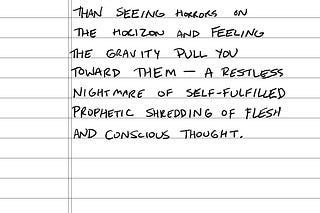 THAN SEEING HORRORS ON
THE HORIZON AND FEELING
THE GRAVITY PULL YOU
TOWARD THEM — A RESTLESS
NIGHTMARE OF SELF-FULFILLED
PROPHETIC SHREDDING OF FLESH
AND CONSCIOUS THOUGHT.